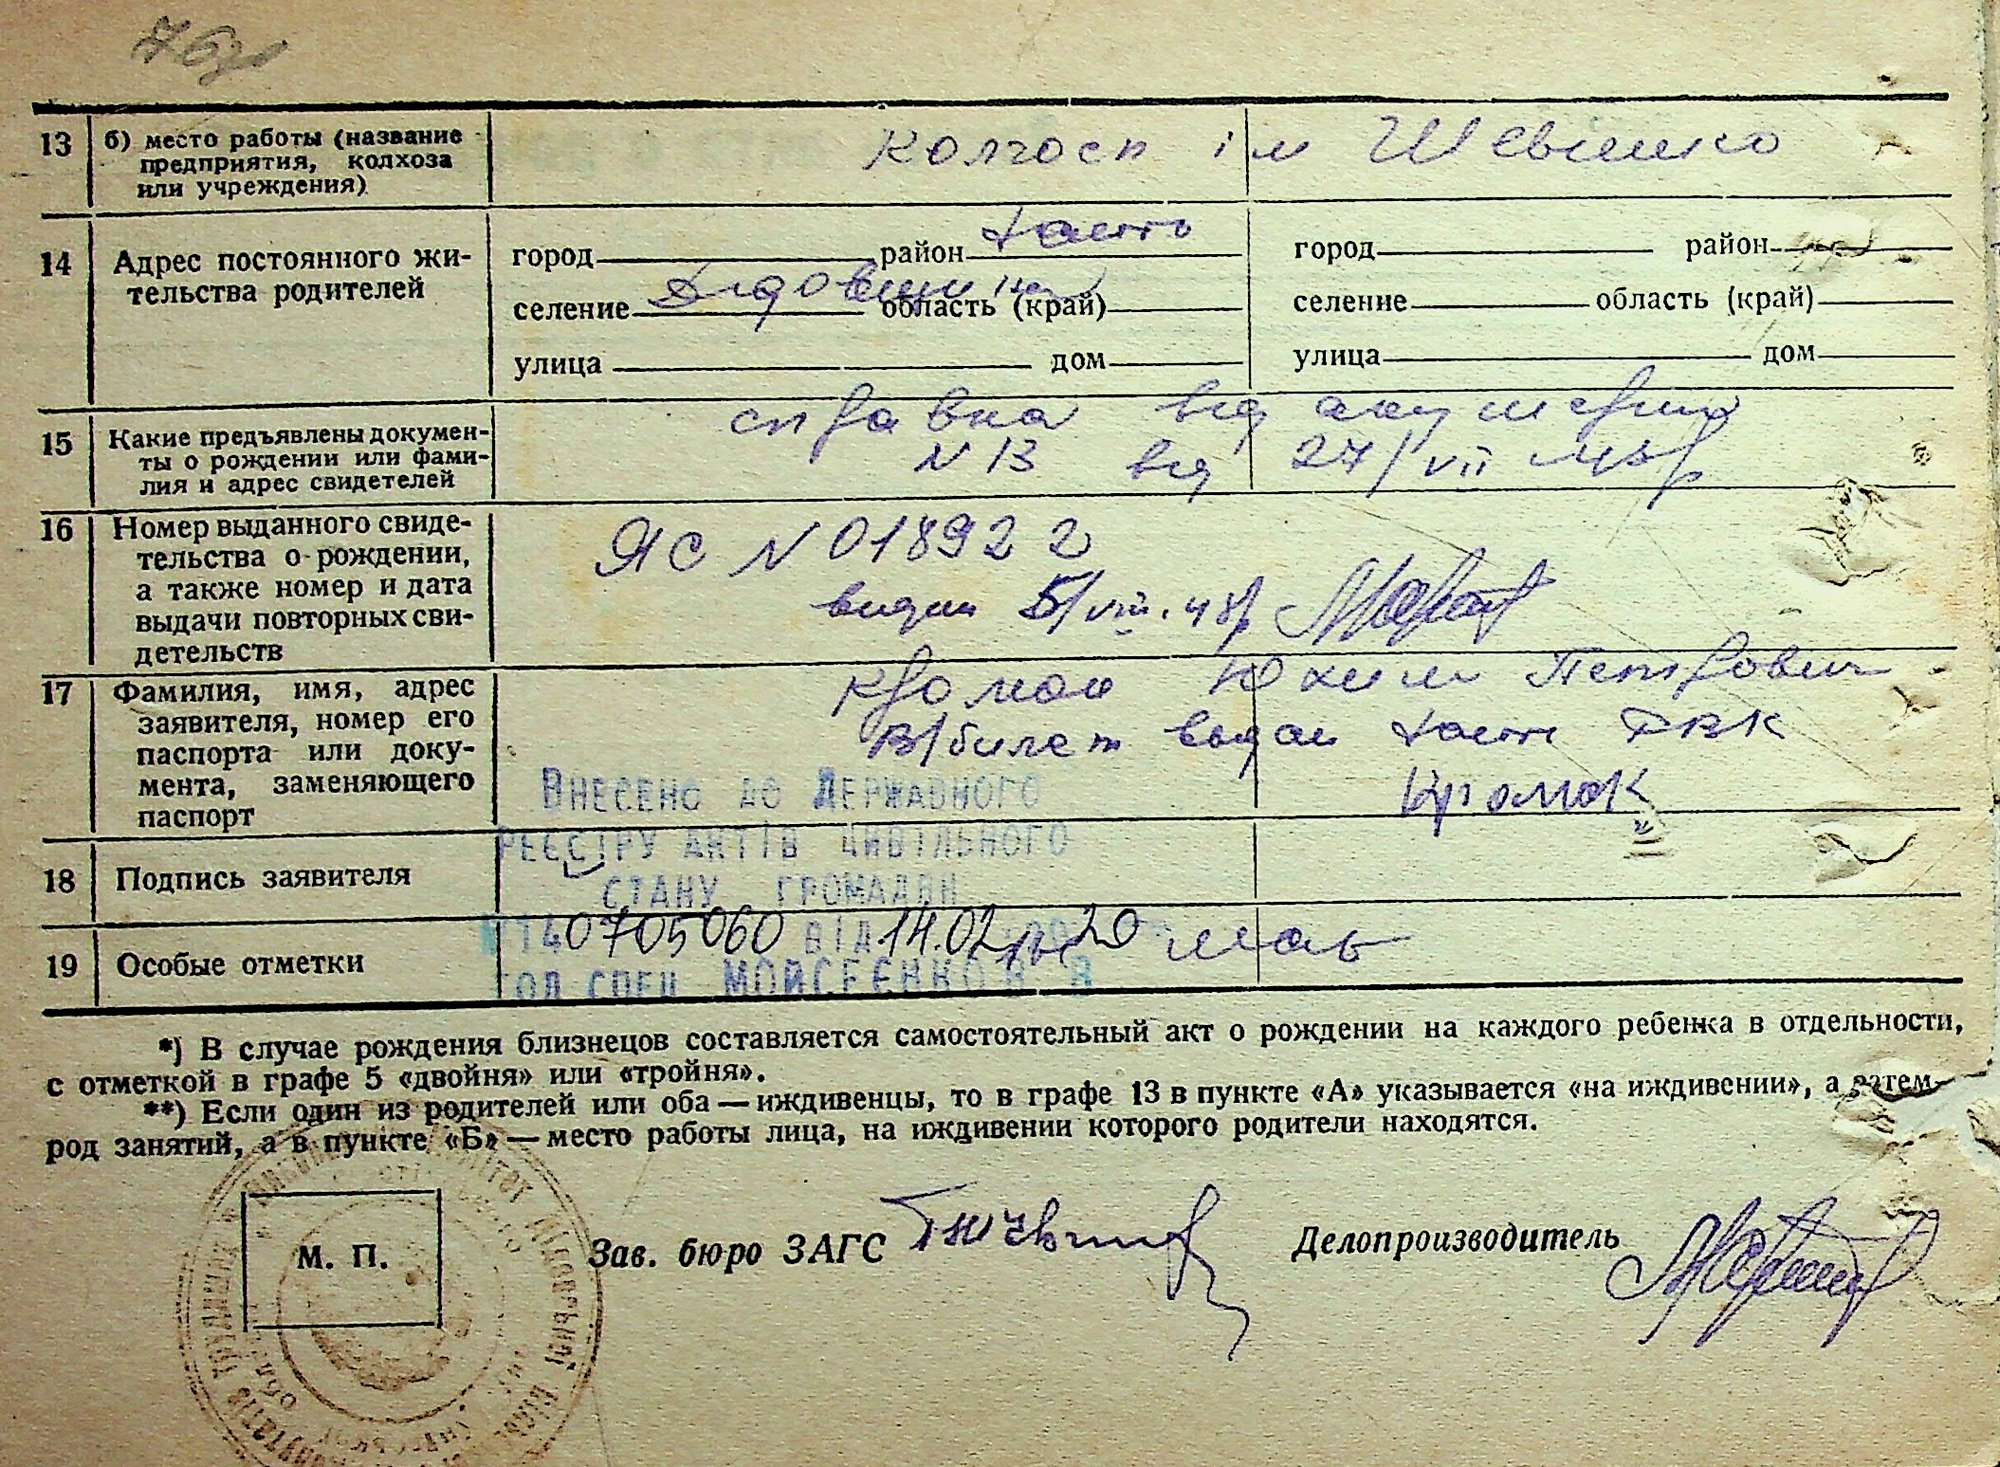 13 б) место работы (название
предприятия, колхоза
или учреждения)
Колгосп ім Шевченко
14 Адрес постоянного жи-
тельства родителей
город район город район
селение область (край) селение область (край)
улица дом улица дом
15 Какие предъявлены докумен-
ты о рождении или фами-
лия и адрес свидетелей
справка від акушерки
N 13 від 27/VII 48р
16 Номер выданного свиде-
тельства о рождении,
а также номер и дата
выдачи повторных сви-
детельств
ЯС N 018922
видан 5/VIII.48р
17 Фамилия, имя, адрес
заявителя, номер его
паспорта или доку-
мента, заменяющего
паспорт
Кромок Юхим Петрович
В/билет выдан РВК
Кромок
ВНЕСЕНО ДО ДЕРЖАВНОГО
РЕЄСТРУ АКТІВ ЦИВІЛЬНОГО
СТАНУ ГРОМАДЯН
18 Подпись заявителя
№140705060 ВІД 14.02 20
19 Особые отметки
ГОЛ СПЕЦ МОЙСЕЄНКО В В
*) В случае рождения близнецов составляется самостоятельный акт о рождении на каждого ребенка в отдельности,
с отметкой в графе 5 «двойня» или «тройня».
**) Если один из родителей или оба — иждивенцы, то в графе 13 в пункте «А» указывается «на иждивении», а затем
род занятий, а в пункте «Б» — место работы лица, на иждивении которого родители находятся.
М. П.
Зав. бюро ЗАГС
Делопроизводитель